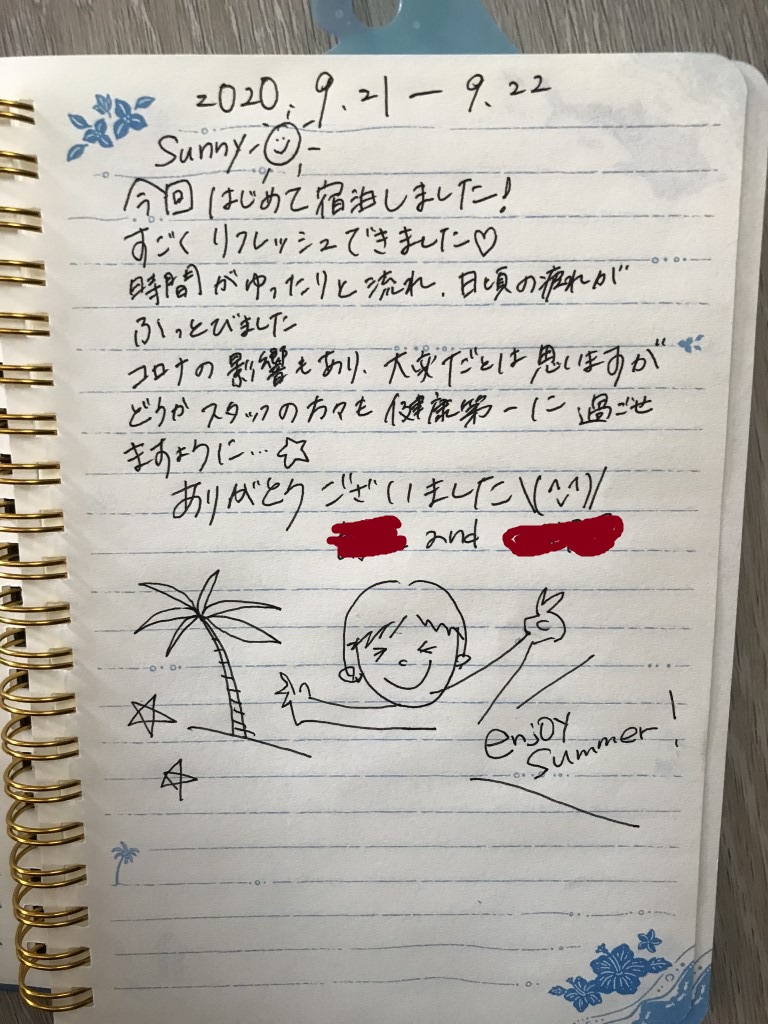 2020.9.21ー9.22
Sunny
今回はじめて宿泊しました!
すごくリフレッシュできました♡
時間がゆったりと流れ、日頃の疲れが
ふっとびました
コロナの影響もあり、大変だとは思いますが
どうかスタッフの方々も健康第一に過ごせ
ますように…☆
ありがとうございました\(^^)/
and
enjoy
summer!